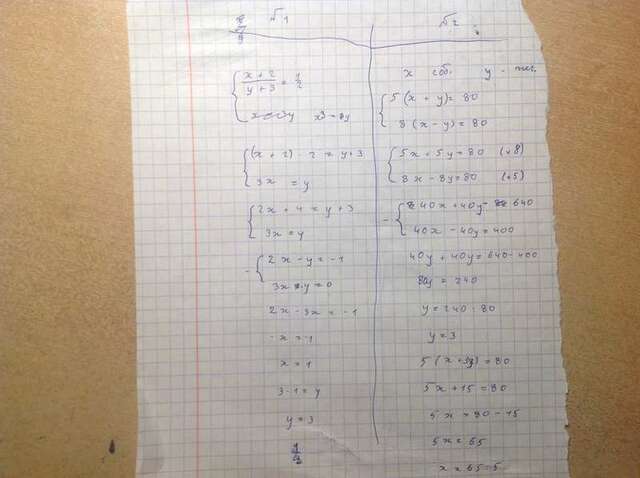 №1
(x + 2)/(y + 3) = 1/2
x³ = y
(x + 2) · 2 = y + 3
3x = y
2x + 4 = y + 3
3x = y
2x - y = -1
3x - y = 0
2x - 3x = -1
-x = -1
x = 1
3·1 = y
y = 3
№2
x соб. y - теч.
5(x + y) = 80
8(x - y) = 80
5x + 5y = 80 (×8)
8x - 8y = 80 (×5)
40x + 40y = 640
40x - 40y = 400
40y + 40y = 640 - 400
80y = 240
y = 240 : 80
y = 3
5(x + 3) = 80
5x + 15 = 80
5x = 80 - 15
5x = 65
x = 65:5